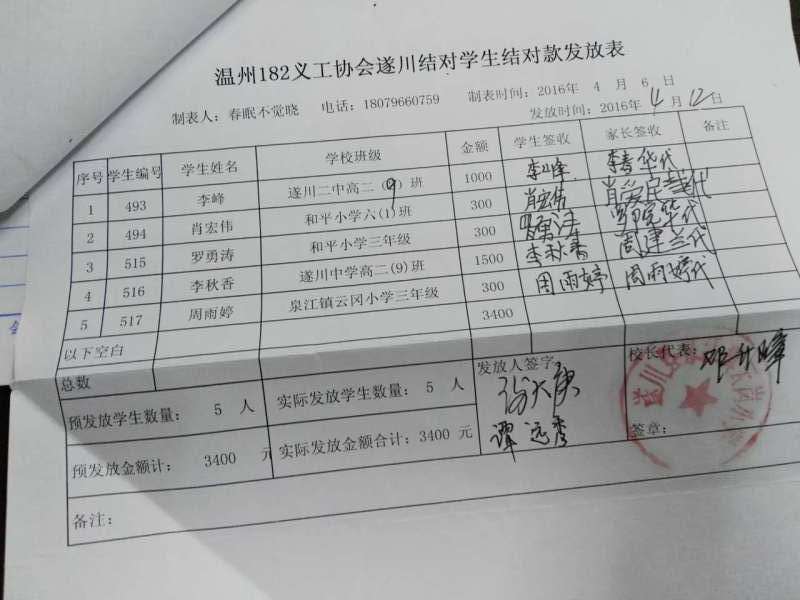 温州182义工协会遂川结对学生结对款发放表
制表人：春眠不觉晓 电话：18079660759 制表时间：2016年 4 月 6 日
发放时间：2016年 4 月 12 日
序号 学生编号 学生姓名 学校班级 金额 学生签收 家长签收 备注
1 493 李峰 遂川二中高二（9）班 1000 李峰 李春华代
2 494 肖宏伟 和平小学六(1)班 300 肖宏伟
3 515 罗勇涛 和平小学三年级 300 罗勇涛
4 516 李秋香 遂川中学高二(9)班 1500 李秋香 周建兰代
5 517 周雨婷 泉江镇云冈小学三年级 300 周雨婷 周雨婷代
以下空白 3400
总数
预发放学生数量： 5 人 实际发放学生数量： 5 人 发放人签字： 校长代表：
预发放金额计： 3400 元 实际发放金额合计：3400 元 谭远秀 签章：
备注：